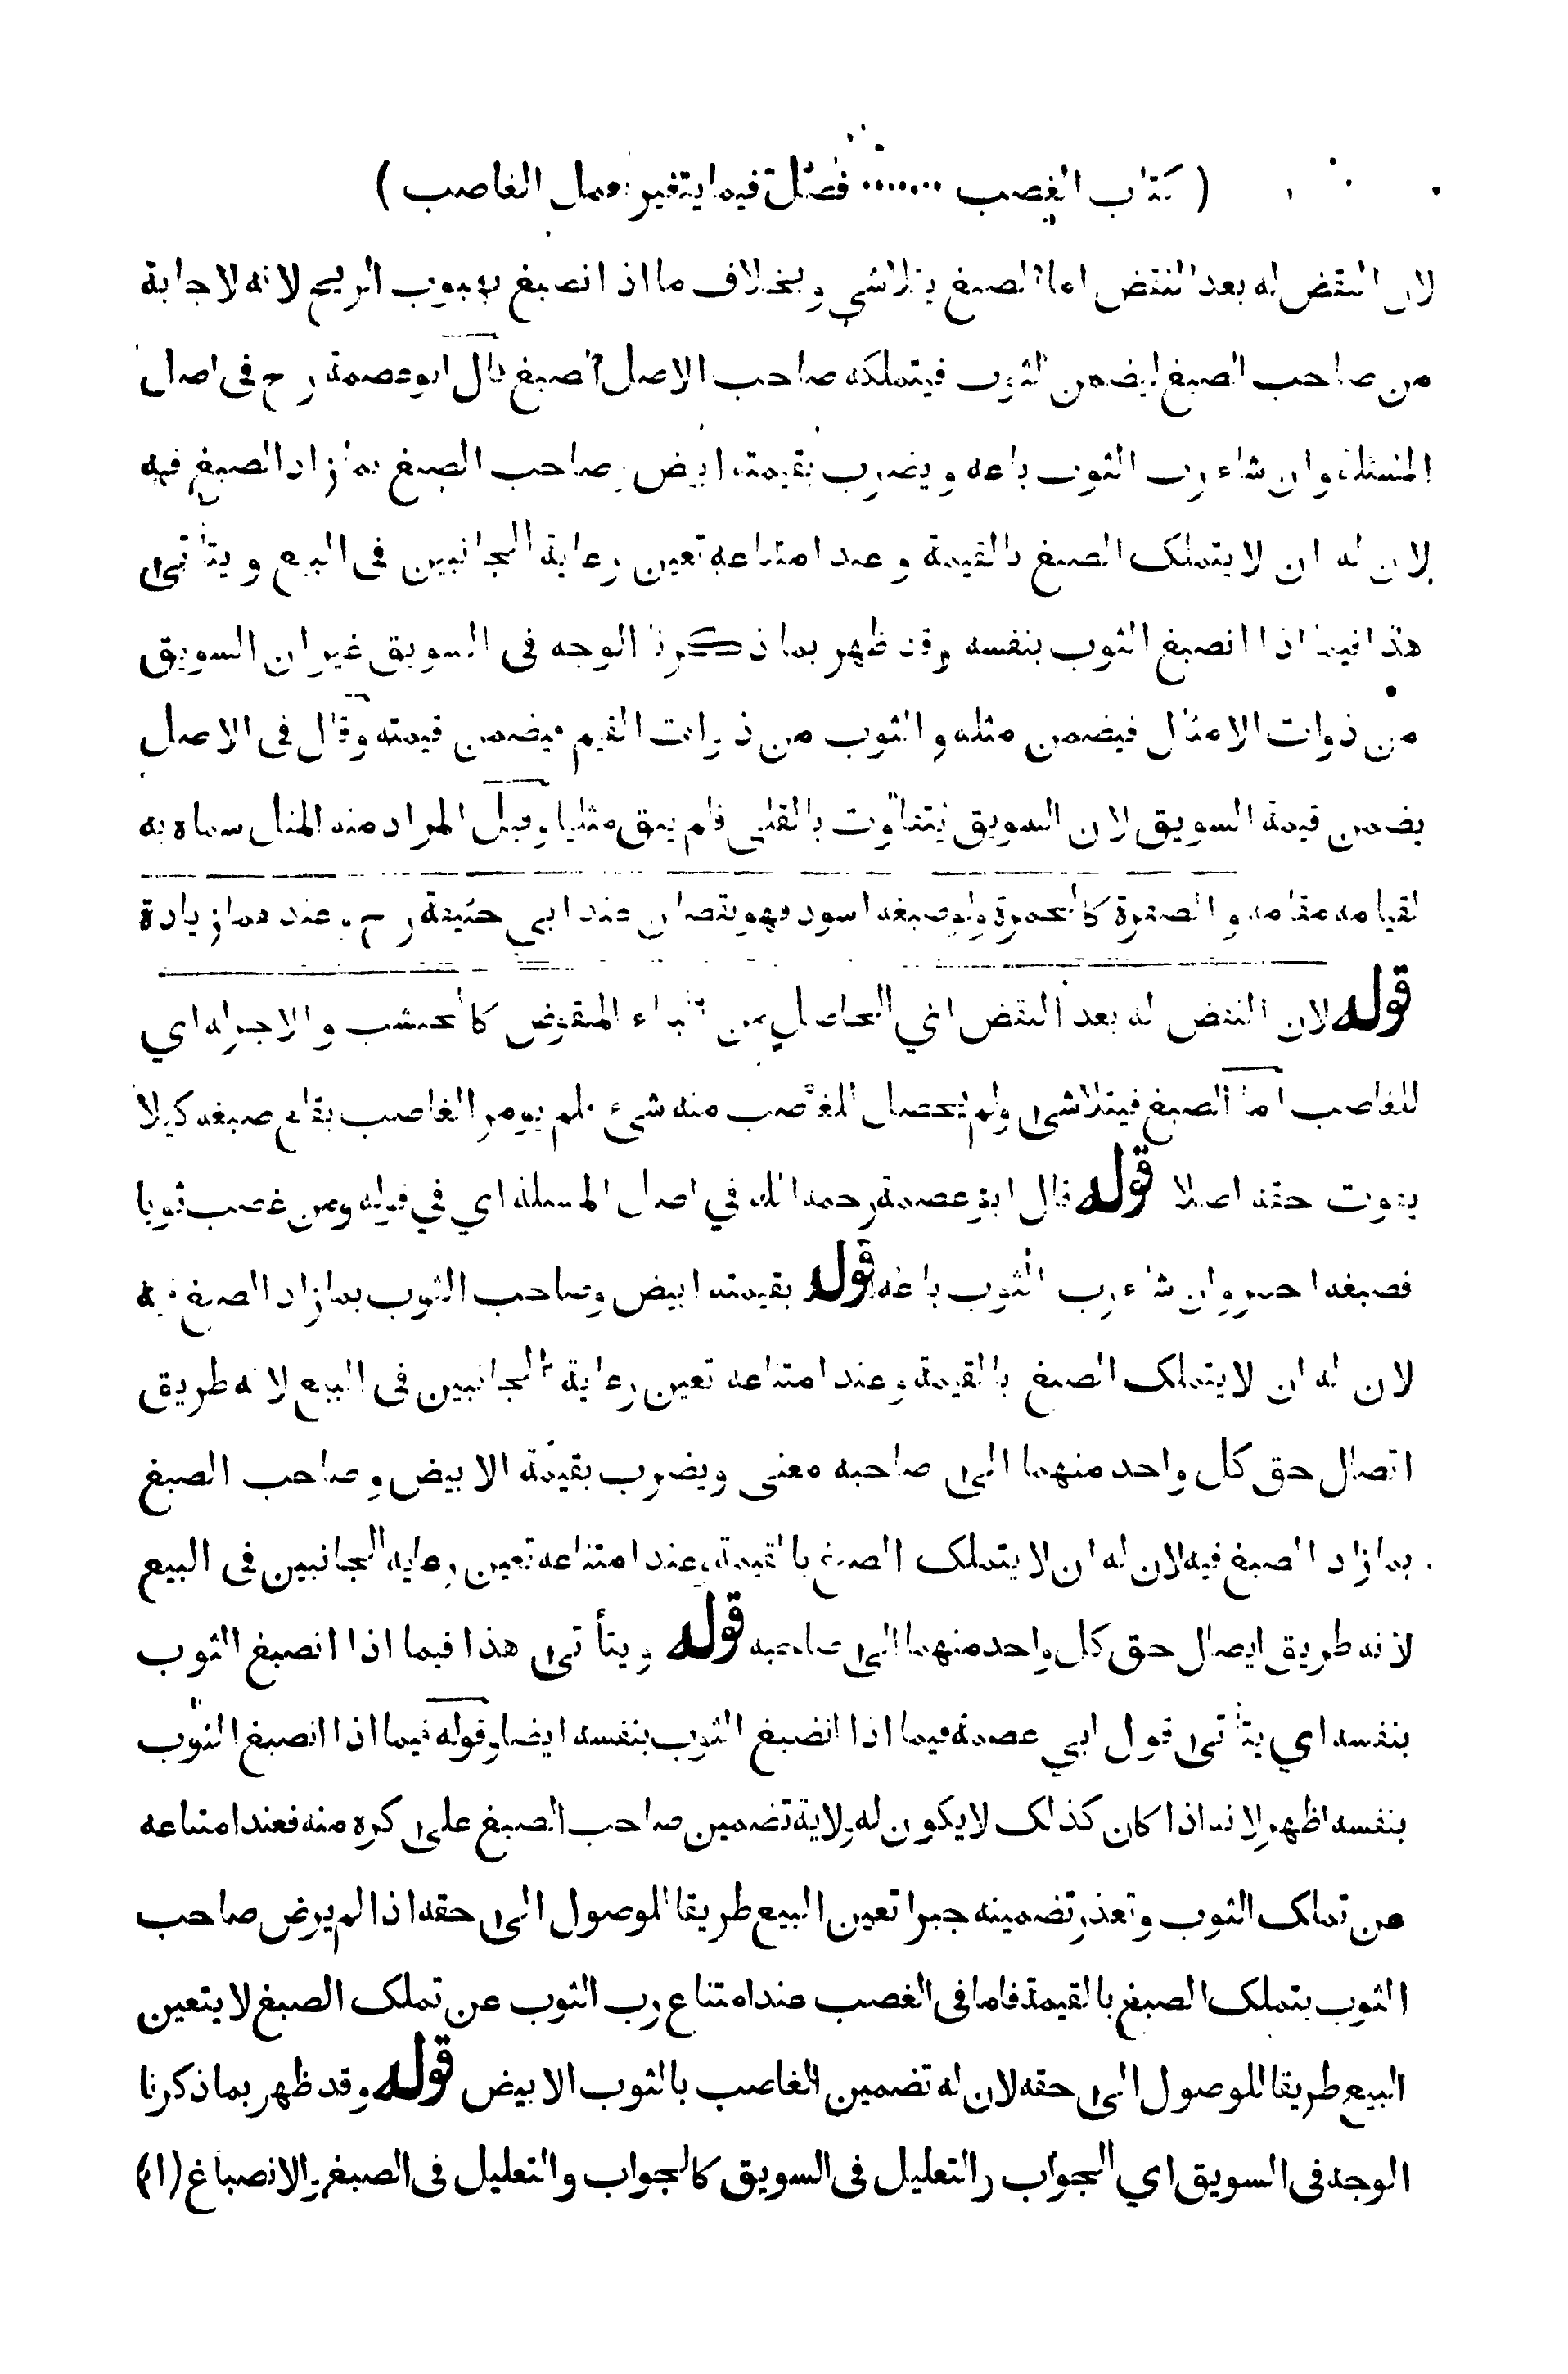 ( كتاب الغصب ······· فصل فيما يتغير بعمل الغاصب )
لان النقض له بعد النقض اما الصبغ يتلاشى وبخلاف ما اذا انصبغ بهبوب الريح لانه لا جناية
من صاحب الصبغ ليضمن الثوب فيتملكه صاحب الاصل الصبغ قال ابوعصمة رح فى اصل
المسئلة وان شاء رب الثوب باعه ويضرب بقيمته ابيض وصاحب الصبغ بما زاد الصبغ فيه
لان له ان لا يتملك الصبغ بالقيمة وعند امتناعه تعين رعاية الجانبين فى البيع ويتأتى
هذا فيما اذا انصبغ الثوب بنفسه وقد ظهر بما ذكرنا الوجه فى السويق غير ان السويق
من ذوات الامثال فيضمن مثله والثوب من ذوات القيم فيضمن قيمته وقال فى الاصل
يضمن قيمة السويق لان السويق يتفاوت بالقلى فلم يبق مثليا وقيل المراد منه المثل سماه به
لقيامه مقامه والصفرة كالحمرة ولو صبغه اسود فهو نقصان عند ابي حنيفة رح وعندهما زيادة
قوله لان النقض له بعد النقض اي الحاصل من البناء المنقوض كالخشب والاجر له اي
للغاصب اما الصبغ فيتلاشى ولم يحصل للغاصب منه شيء فلم يومر الغاصب بقلع صبغه كيلا
يفوت حقه اصلا قوله قال ابو عصمة رحمه الله في اصل المسئلة اي في قوله ومن غصب ثوبا
فصبغه احمر وان شاء رب الثوب باعه قوله بقيمته ابيض وصاحب الثوب بما زاد الصبغ فيه
لان له ان لا يتملك الصبغ بالقيمة وعند امتناعه تعين رعاية الجانبين فى البيع لانه طريق
اتصال حق كل واحد منهما الى صاحبه معنى ويضرب بقيمة الابيض وصاحب الصبغ
بما زاد الصبغ فيه لان له ان لا يتملك الصبغ بالقيمة وعند امتناعه تعين رعاية الجانبين فى البيع
لانه طريق ايصال حق كل واحد منهما الى صاحبه قوله ويتأتى هذا فيما اذا انصبغ الثوب
بنفسه اي يتأتى قول ابي عصمة فيما اذا انصبغ الثوب بنفسه ايضا وقوله فيما اذا انصبغ الثوب
بنفسه اظهر لانه اذا كان كذلك لا يكون له ولاية تضمين صاحب الصبغ على كره منه فعند امتناعه
من تملك الثوب وتعذر تضمينه جبرا تعين البيع طريقا للوصول الى حقه اذا لم يرض صاحب
الثوب بتملك الصبغ بالقيمة فاما فى الغصب عند امتناع رب الثوب عن تملك الصبغ لا يتعين
البيع طريقا للوصول الى حقه لان له تضمين الغاصب بالثوب الابيض قوله وقد ظهر بما ذكرنا
الوجه فى السويق اي الجواب والتعليل فى السويق كالجواب والتعليل فى الصبغ والانصباغ